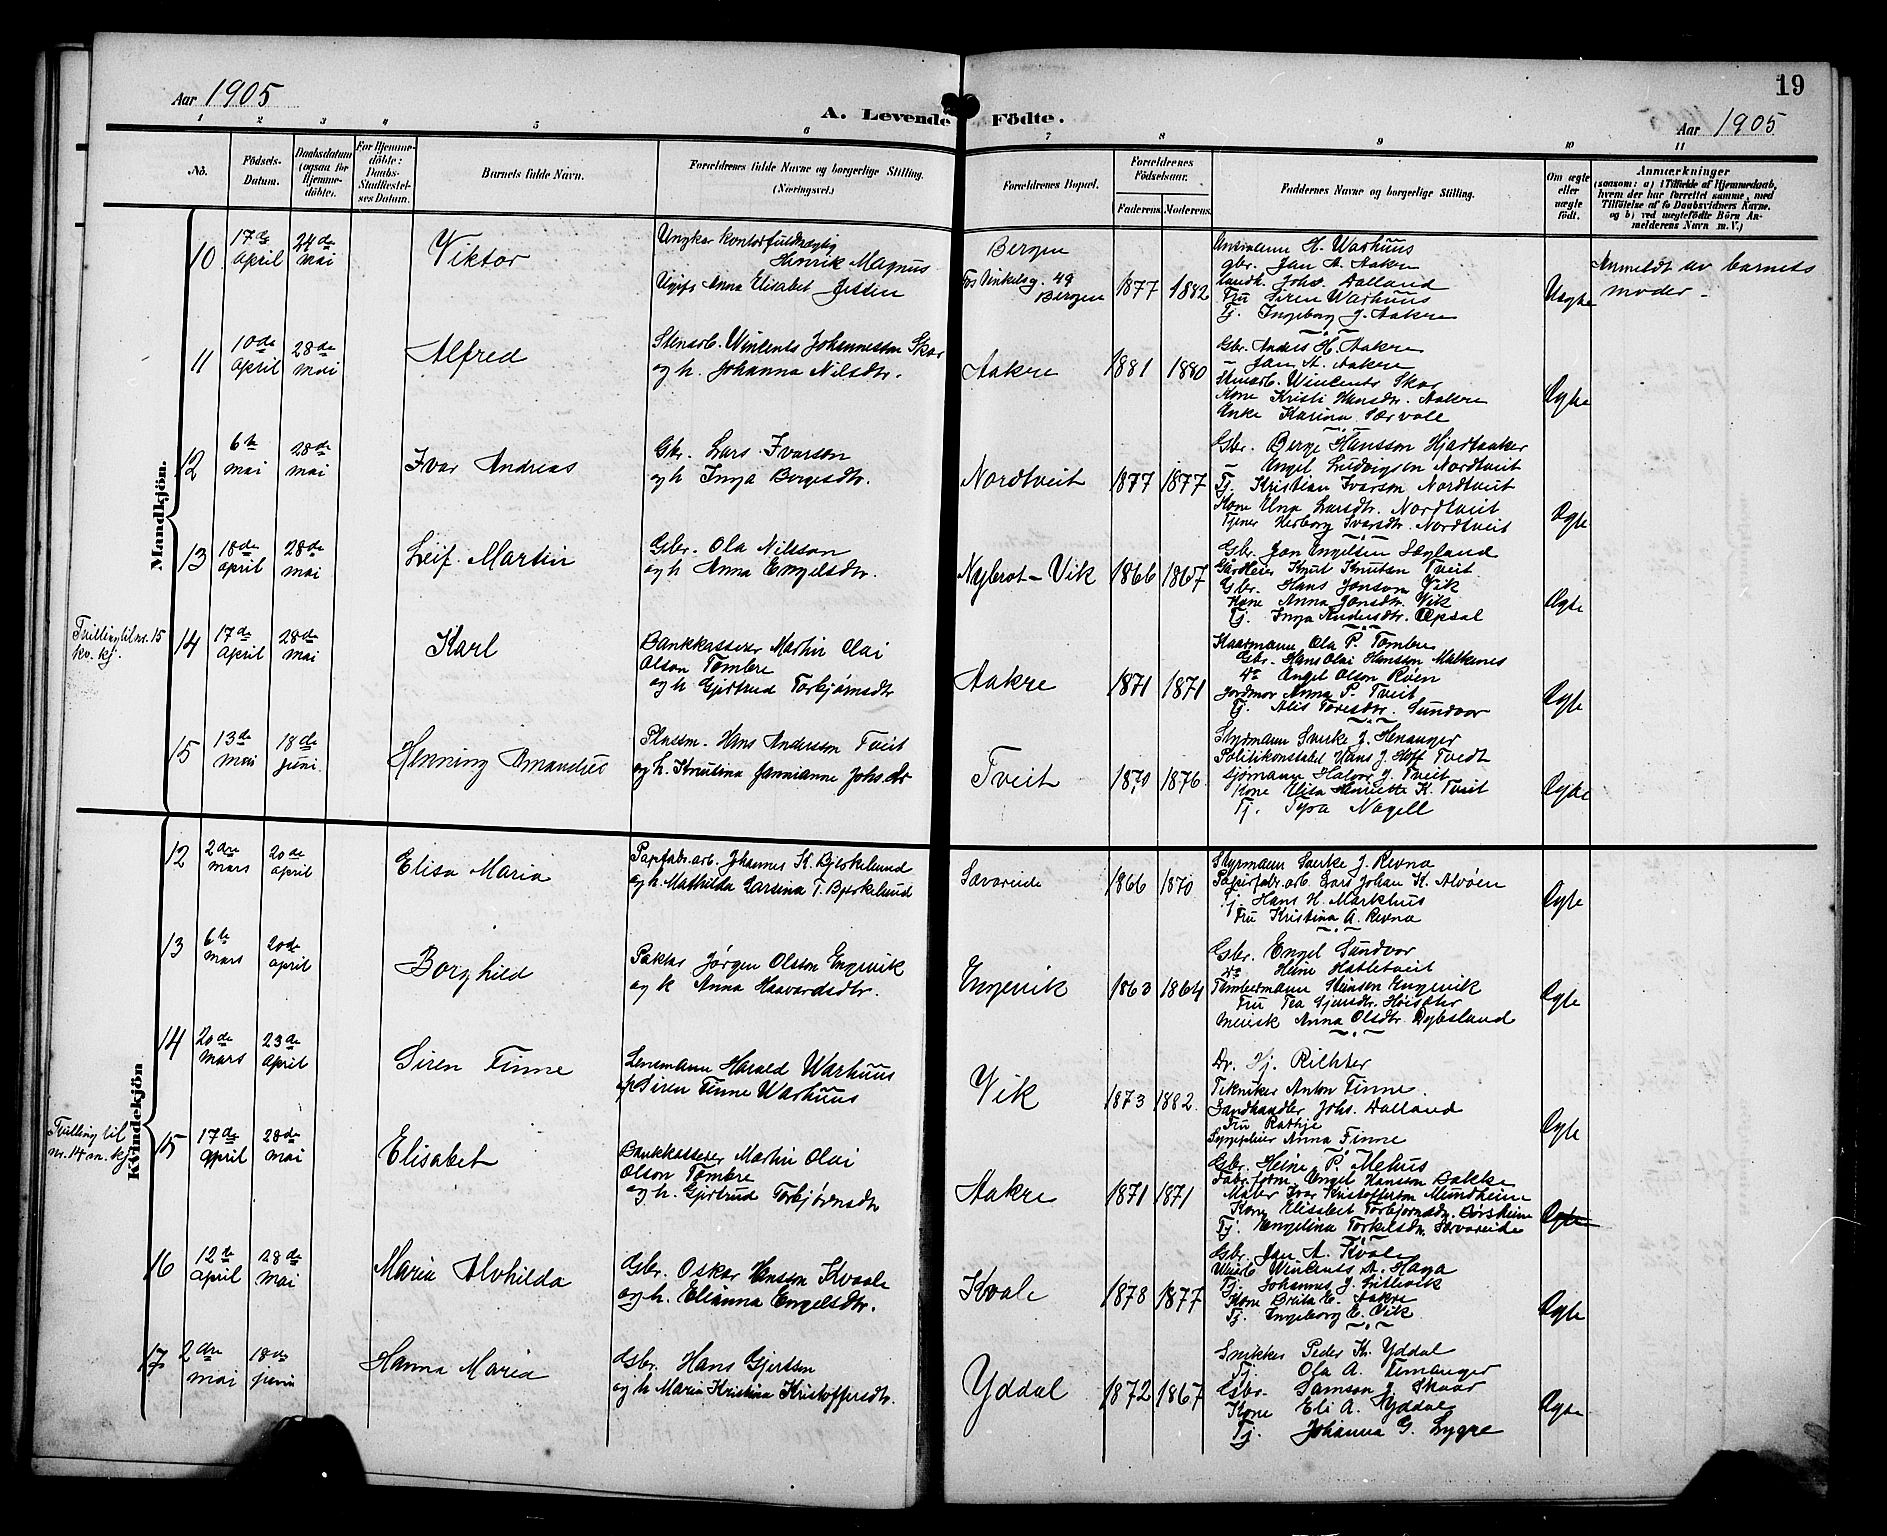 19
Aar 1905
A. Levende Födte.
Aar 1905
1 2 3 4 5 6 7 8 9 10 11
No.
Födsels-
Datum.
Daabsdatum
(ogsaa for
Hjemme-
döbte).
For Hjemme-
döbte:
Daabs-
Stadfæstel-
ses Datum.
Barnets fulde Navn.
Forældrenes fulde Navne og borgerlige Stilling.
(Næringsvei.)
Forældrenes Bopæl.
Forældrenes
Födselsaar.
Faderens. Moderens.
Faddernes Navne og borgerlige Stilling.
Om ægte
eller
uægte
födt.
Anmærkninger
(saasom: a) i Tilfælde af Hjemmedaab,
hvem der har forrettet samme, med
Tilföielse af to Daabsvidners Navne,
og b) ved uægtefödte Börn An-
melderens Navn m. V.)
Mandkjön.
10
17de
April
24de
mai
Viktor
Ungkar kontorfuldmægtig
Henrik Magnus
Ugift Anna Elisabet Jessen
Bergen
49
Bergen
1877
1882
H. Warhuus
gbr. Jan A. Aakre
Landh. Johs. Dalland
Fru Siren Warhuus
Tj. Ingeborg J. Aakre
Uægte
Anmeldt av barnets
moder
11
10de
April
28de
mai
Alfred
Stenarb. Wincents Johannesson Skar
og h. Johanna Nilsdtr.
Aakre
1881
1880
Gbr. Anders H. Aakre
Jan A. Aakre
Stenarb. Wincents Skar
Kone Kristi Hansdtr. Aakre
Enke Karina Særvold
Ægte
12
6te
mai
28de
mai
Ivar Andreas
Gbr. Lars Ivarson
og h Inga Bergesdtr.
Nordtveit
1877
1877
Gbr. Berge Hansson Hjartaaker
Engel Ludvigsen Nordtveit
Tj. Kristian Ivarson Nordtveit
Kone Unn Larsdtr. Nordtveit
Tjener Herborg Ivarsdtr. Nordtveit
Ægte
13
18de
april
28de
mai
Leif Martin
Gbr. Ola Nilsson
og h Anna Engelsdtr.
Nybrot - Vik
1866
1867
Gbr. Jan Engelsen Sægland
Knut Knutsen Tveit
Gbr. Hans Jonson Vik
Kone Anna Jonsdtr. Vik
Tj. Inga Andersdtr. Opsal
Ægte
Tvilling til nr. 15
kv. kj.
14
17de
April
28de
mai
Karl
Bankkasserer Martin Olai
Olson Tombre
og h Gjertrud Torbjørnsdtr
Aakre
1871
1871
Kaarmann Ola P. Tombre
Gbr. Hans Olai Hansen Malkenes
do Engel Olson Røen
Jordmor Anna P. Tveit
Tj. Alis Toresdtr. Sundvor
Ægte
15
13de
mai
18de
juni
Henning Amandus
Plassm. Hans Andersson Tveit
og h. Knutina Jannianne Johsdtr
Tveit
1870
1876
Styrmann Sverke J. Henanger
Politikonstabel Hans J. Hoff Tvedt
Sjømann Halvor J. Tveit
Kone Elisa Henriette K. Tveit
Tj. Tyra Nagell
Ægte
Kvindekjön
12
2dre
mars
20de
april
Elisa Maria
Papfabr.arb. Johannes K. Bjerkelund
og h. Mathilda Larsina T. Bjerkelund
Sævareide
1866
1870
Styrmann Sverke J. Revna
Papirfabr. arb Lars Johan K. Alvøen
Tj. Hans H. Markhus
Fru Kristina A. Revna
Ægte
13
6te
mars
20de
april
Borghild
Jørgen Olsson Engevik
og h Anna Haavardsdtr.
Engevik
1863
1864
Gbr. Engel Sundvor
do Heine Hatletveit
Tømbermann Steinson Engevik
Fru Tea
Anna Olsdtr.
Ægte
14
20de
mars
23de
April
Siren Finne
Lensmann Harald Warhuus
Siren Finne Warhuus
Vik
1873
1882
Dr. Hj. Richter
Tekniker Anton Finne
Landhandler Johs. Dalland
Fru Rathje
Anna Finne
Ægte
Tvilling til
nr. 14 m. kj.
15
17de
april
28de
mai
Elisabet
Bankkasserer Martin Olai
Olson Tombre
og h. Gjertrud Torbjørnsdtr
Aakre
1871
1871
Gbr. Heine P. Mehus
Fabr.form. Engel Hansen Bakke
Maler Ivar Kristofferson Mundheim
Kone Elisabet Torbjørnsdtr.
Tj. Engelina Torkelsdtr. Sævareide
Ægte
16
12te
April
28de
mai
Maria Alvhilda
Gbr. Oskar Hansson Kvaale
og h. Elianna Engelsdtr.
Kvale
1878
1877
Gbr. Jan A. Kvale
Wincents A. Haga
Tj. Johannes J.
Kone Brita E. Aakre
Tj. Ingeborg E. Vik
Ægte
17
2dre
mai
18de
juni
Hanna Maria
Gbr. Hans Gjertson
og h Maria Kristina Kristoffersdtr.
Yddal
1872
1867
Snikker Peder K. Yddal
Tj. Ola A.
Gbr. Samson J. Skaar
Kone Eli A. Yddal
Tj. Johanna G. Lygre
Ægte